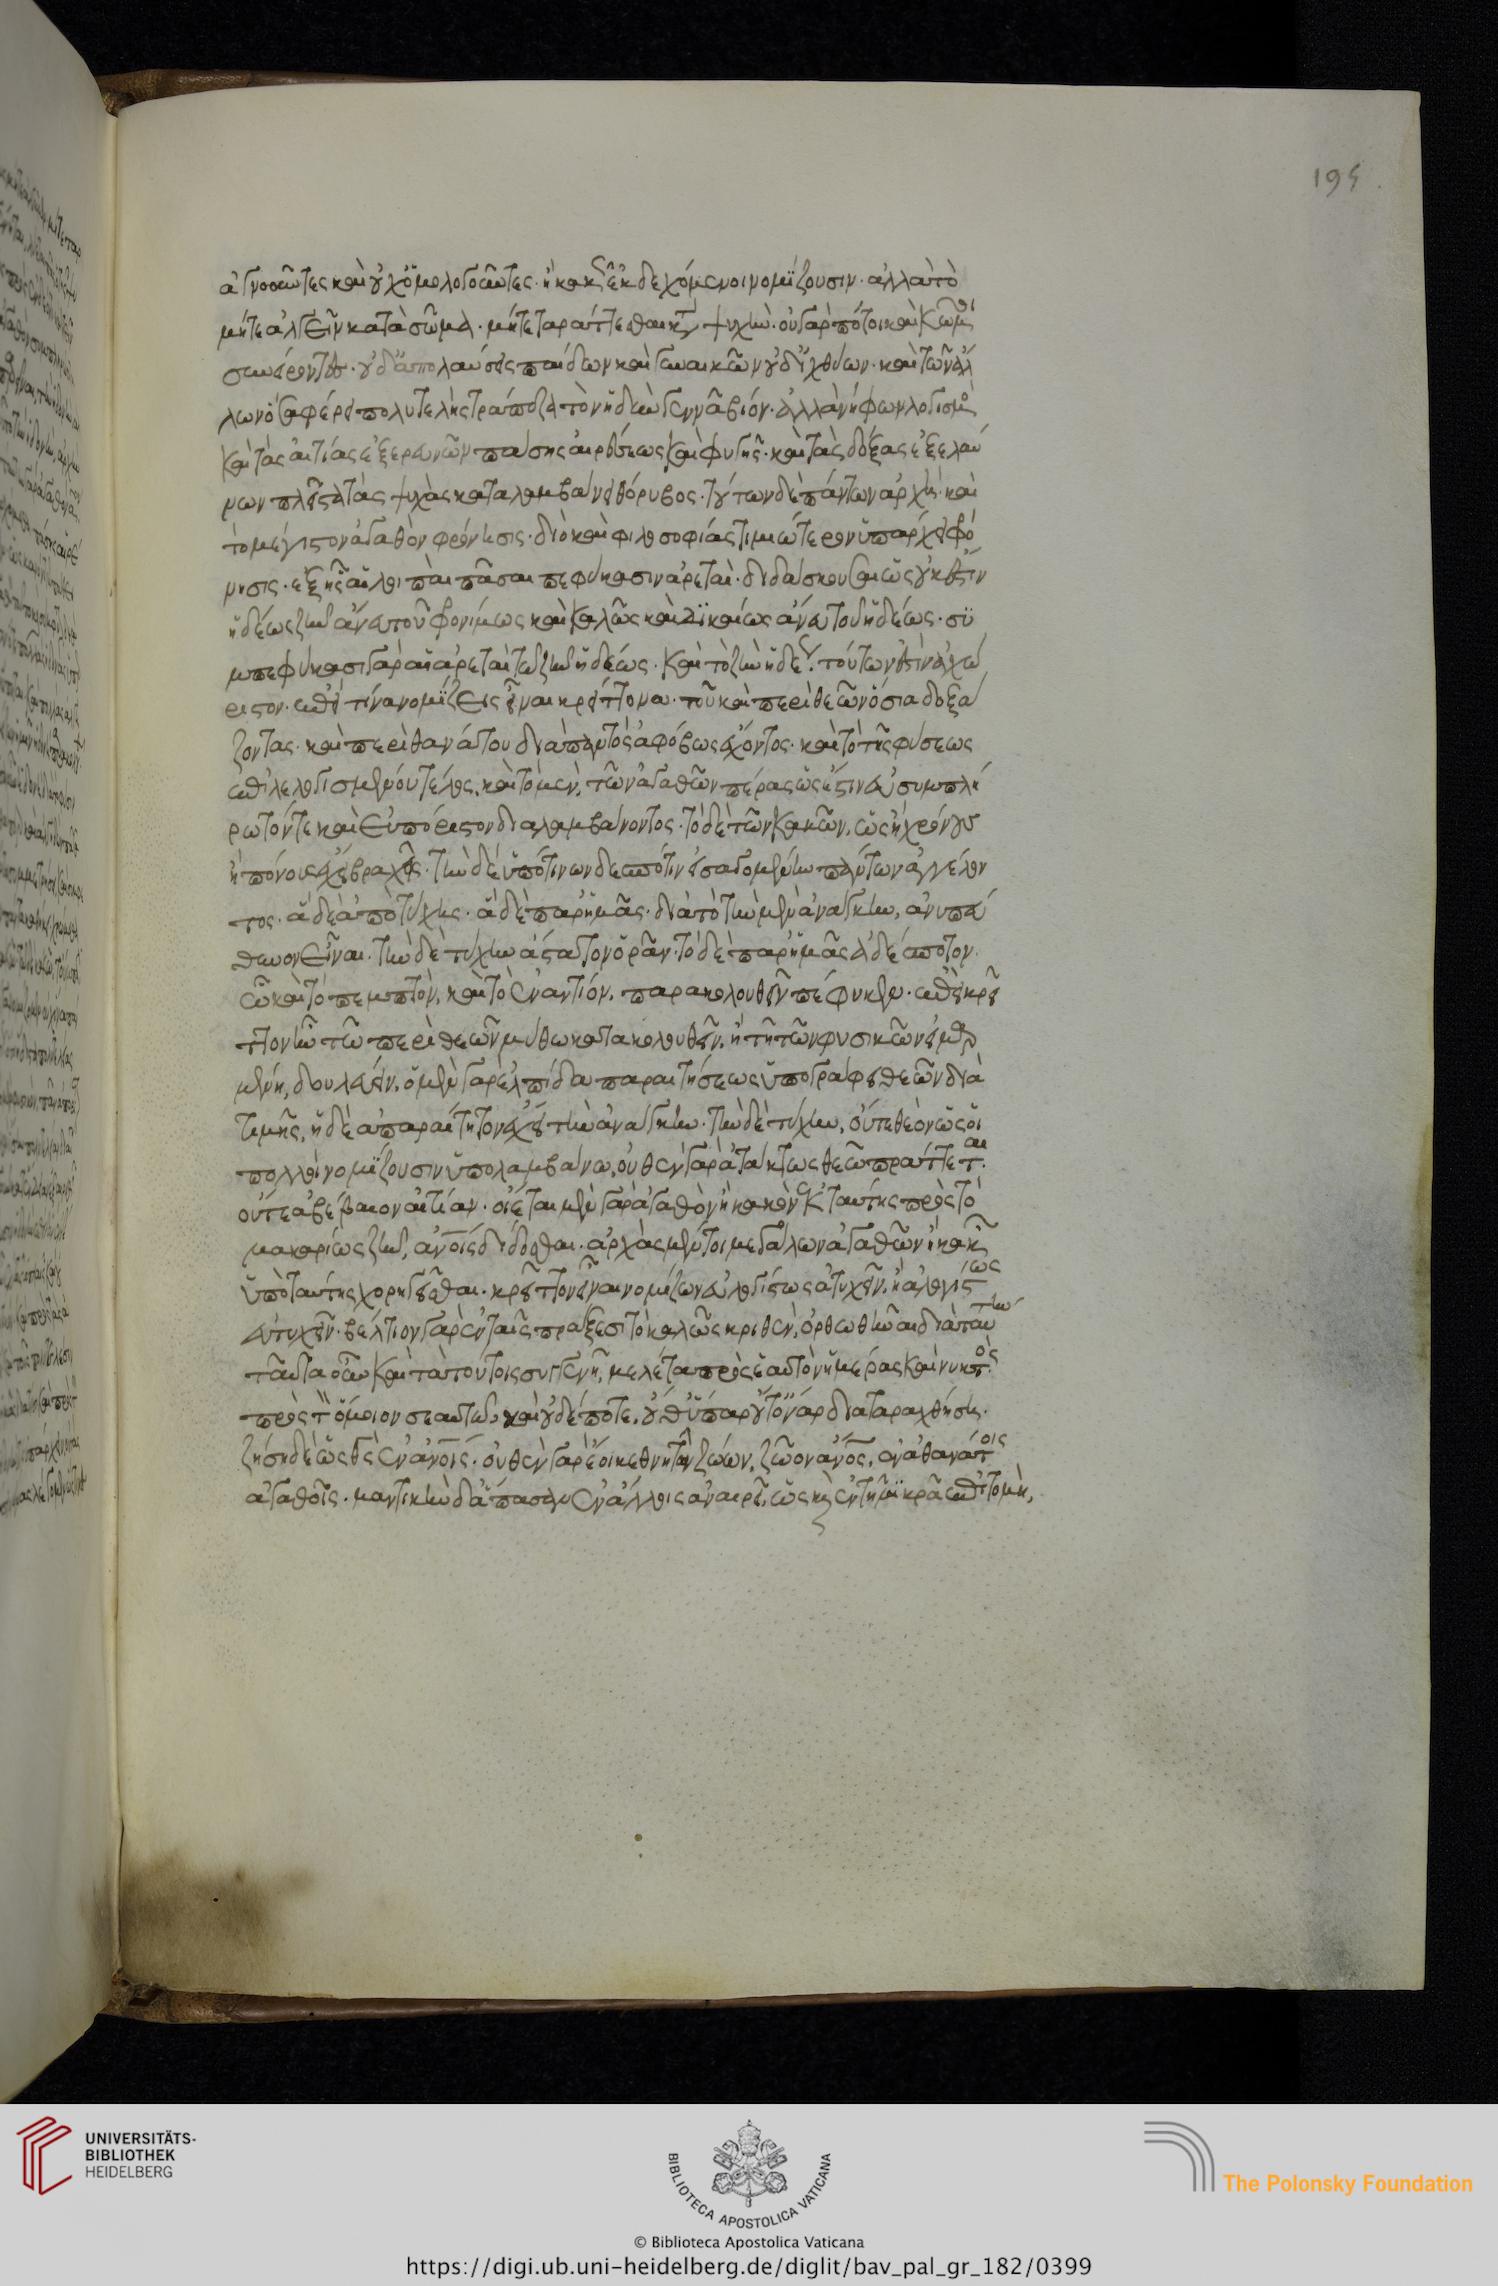 195
ἀγνοοῦντες καὶ οὐχ ὁμολογοῦντες· ἢ κακῶς ἐκδεχόμενοι νομίζουσιν· ἀλλὰ τὸ
μήτε ἀλγεῖν κατὰ σῶμα· μήτε ταράττεσθαι κατὰ ψυχήν· οὐ γὰρ πότοι καὶ κῶμοι
συνείροντες· οὐδ' ἀπολαύσεις παίδων καὶ γυναικῶν οὐδ' ἰχθύων· καὶ τῶν ἄλ
λων ὅσα φέρει πολυτελὴς τράπεζα τὸν ἡδὺν γεννᾷ βίον· ἀλλὰ νήφων λογισμὸς
καὶ τὰς αἰτίας ἐξερευνῶν πάσης αἱρέσεως καὶ φυγῆς· καὶ τὰς δόξας ἐξελαύ
νων πλεῖστα τὰς ψυχὰς καταλαμβάνει θόρυβος· τούτων δὲ πάντων ἀρχὴ· καὶ
τὸ μέγιστον ἀγαθὸν φρόνησις· διὸ καὶ φιλοσοφίας τιμιώτερον ὑπάρχει φρό
νησις· ἐξ ἧς αἱ λοιπαὶ πᾶσαι πεφύκασιν ἀρεταί· διδάσκουσαι ὡς οὐκ ἔστιν
ἡδέως ζῆν ἄνευ τοῦ φρονίμως καὶ καλῶς καὶ δικαίως ἄνευ τοῦ ἡδέως· συ
μπεφύκασι γὰρ αἱ ἀρεταὶ τῷ ζῆν ἡδέως· καὶ τὸ ζῆν ἡδέως· τούτων ἐστὶν ἀχώ
ριστον· ἐπεὶ τίνα νομίζεις εἶναι κρείττονα· τοῦ καὶ περὶ θεῶν ὅσια δοξά
ζοντας· καὶ περὶ θανάτου διὰ παντὸς ἀφόβως ἔχοντος· καὶ τὸ τῆς φύσεως
ἐπιλελογισμένου τέλος, καὶ τὸ μὲν, τῶν ἀγαθῶν πέρας ὡς ἔστιν εὐσυμπλή
ρωτόν τε καὶ εὐπόριστον διαλαμβάνοντος· τὸ δὲ τῶν κακῶν, ὡς ἢ χρόνους
ἢ πόνους ἔχει βραχεῖς· τὴν δὲ ὑπό τινων δεσπότιν εἰσαγομένην πάντων ἀγγέλον
τος· ἃ δὲ ἀπὸ τύχης· ἃ δὲ παρ' ἡμᾶς· διὰ τὸ τὴν μὲν ἀνάγκην, ἀνυπεύ
θυνον εἶναι· τὴν δὲ τύχην ἄστατον ὁρᾶν· τὸ δὲ παρ' ἡμᾶς ἀδέσποτον·
ᾧ καὶ τὸ πεμπτὸν, καὶ τὸ ἐναντίον, παρακολουθεῖν πέφυκεν· ἐπεὶ κρεῖ
ττον ἦν τῷ περὶ θεῶν μύθῳ κατακολουθεῖν, ἢ τῇ τῶν φυσικῶν εἱμαρ
μένῃ, δουλεύειν. ὁ μὲν γὰρ ἐλπίδα παραιτήσεως ὑπογράφει θεῶν διὰ
τιμῆς, ἡ δὲ ἀπαραίτητον ἔχει τὴν ἀνάγκην· τὴν δὲ τύχην, οὔτε θεὸν ὡς οἱ
πολλοὶ νομίζουσιν ὑπολαμβάνων, οὐθὲν γὰρ ἀτάκτως θεῷ πράττεται·
οὔτε ἀβέβαιον αἰτίαν· οἴεται μὲν γὰρ ἀγαθὸν ἢ κακὸν ἐκ ταύτης πρὸς τὸ
μακαρίως ζῆν, ἀνθρώποις δίδοσθαι· ἀρχὰς μέντοι μεγάλων ἀγαθῶν ἢ κακῶν
ὑπὸ ταύτης χορηγεῖσθαι· κρεῖττον εἶναι νομίζων εὐλογίστως ἀτυχεῖν, ἢ ἀλογίστως
εὐτυχεῖν· βέλτιον γὰρ ἐν ταῖς πράξεσι τὸ καλῶς κριθὲν, ὀρθωθῆναι διὰ ταύτην·
ταῦτα οὖν καὶ τὰ τούτοις συγγενῆ, μελέτα πρὸς ἑαυτὸν ἡμέρας καὶ νυκτὸς·
πρὸς τὸν ὅμοιον σεαυτῷ, καὶ οὐδέποτε, οὔθ' ὕπαρ οὔτ' ὄναρ διαταραχθήσῃ·
ζήσῃ δὲ ὡς θεὸς ἐν ἀνθρώποις· οὐθὲν γὰρ ἔοικε θνητῷ ζώῳ, ζῶον ἄνθρωπος, ἐν ἀθανάτοις
ἀγαθοῖς· μαντικὴν δ' ἅπασαν ἐν ἄλλοις ἀναιρεῖ, ὡς καὶ ἐν τῇ μικρᾷ ἐπιτομῇ,
UNIVERSITÄTS-
BIBLIOTHEK
HEIDELBERG
BIBLIOTECA APOSTOLICA VATICANA
© Biblioteca Apostolica Vaticana
The Polonsky Foundation
https://digi.ub.uni-heidelberg.de/diglit/bav_pal_gr_182/0399